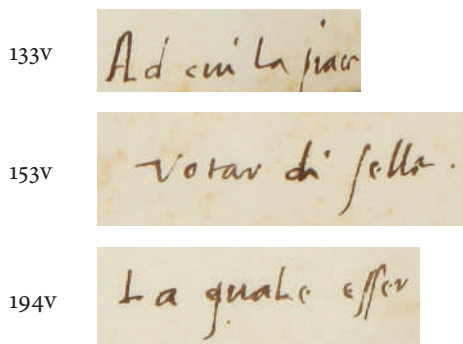 133v
Ad cui la piace
153v
votar di selle.
194v
La quale esser